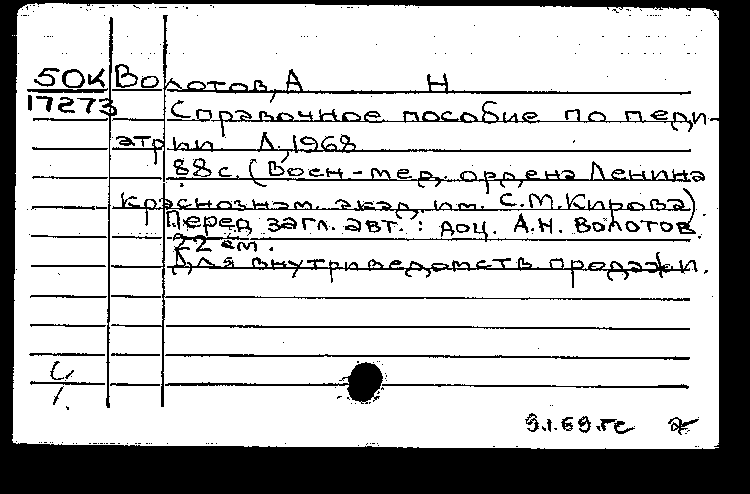 50К Волотов, А Н
17273 Справочное пособие по педи-
атрии Л., 1968
88 с. (Воен-мед. ордена Ленина
краснознам. акад. им. С.М.Кирова).
Перед загл. авт.: доц. А.Н. Волотов.
22 см.
Для внутриведомств. продажи.
9.1.69.